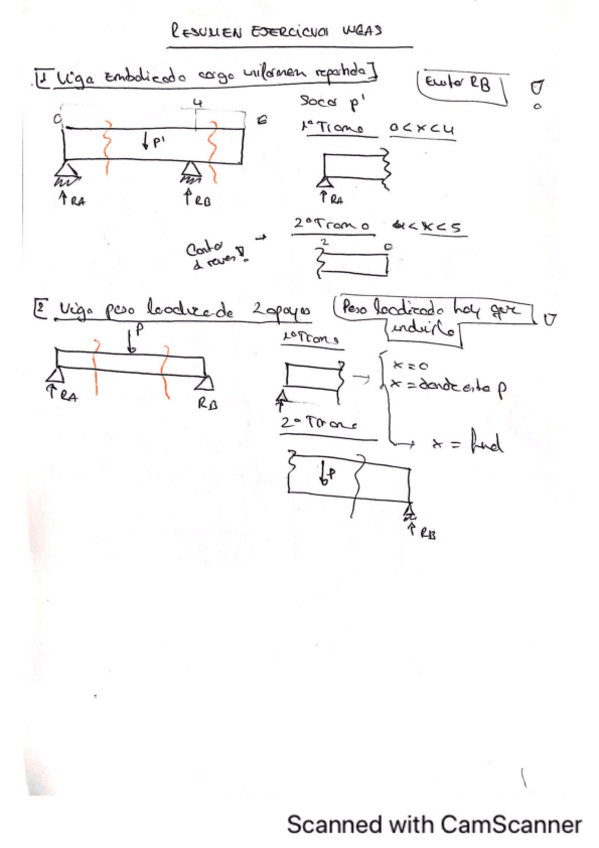 RESUMEN EJERCICIOS VIGAS
1 Viga Embolicado cargo uniformen repartida]
Evitar RB
Sacar p'
0 4
1º Tramo 0<x<4
↓P'
↑RA ↑RB ↑RA
2º Tramo <x<5
2 0
2 Viga peso localizado 2 apoyos
Peso localizado hay que
incluirlo
P
1º Tramo
x=0
x=donde esta P
↑RA RB
2º Tramo
x = final
↓P
↑RB
Scanned with CamScanner